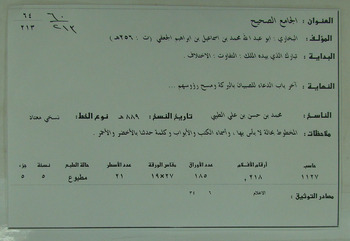 ٦٤ ٦٠
٢١٣ ٢١٣
العنوان : الجامع الصحيح
المؤلف : البخاري : ابو عبد الله محمد بن اسماعيل بن ابراهيم الجعفي (ت : ٢٥٦هـ)
البداية : تبارك الذي بيده الملك : التفاوت : الاختلاف .
النهاية : آخر باب الدعاء للصبيان بالبركة ومسح رؤوسهم ...
الناسخ : محمد بن حسن بن علي الطيبي تاريخ النسخ : ٨٨٩هـ نوع الخط : نسخي معتاد
ملاحظات : المخطوط بحالة لا بأس بها ، وأسماء الكتب والأبواب وكلمة حدثنا بالأخضر والأحمر .
حاسب أرقام الأفلام عدد الأوراق مقاس الورقة عدد الأسطر حالة الطبع نسخة جزء
١١٢٧ ٢١٨ ١٨٥ ٢٧×١٩ ٢١ مطبوع ٥ ٥
مصادر التوثيق : الاعلام ٦ ٣٤